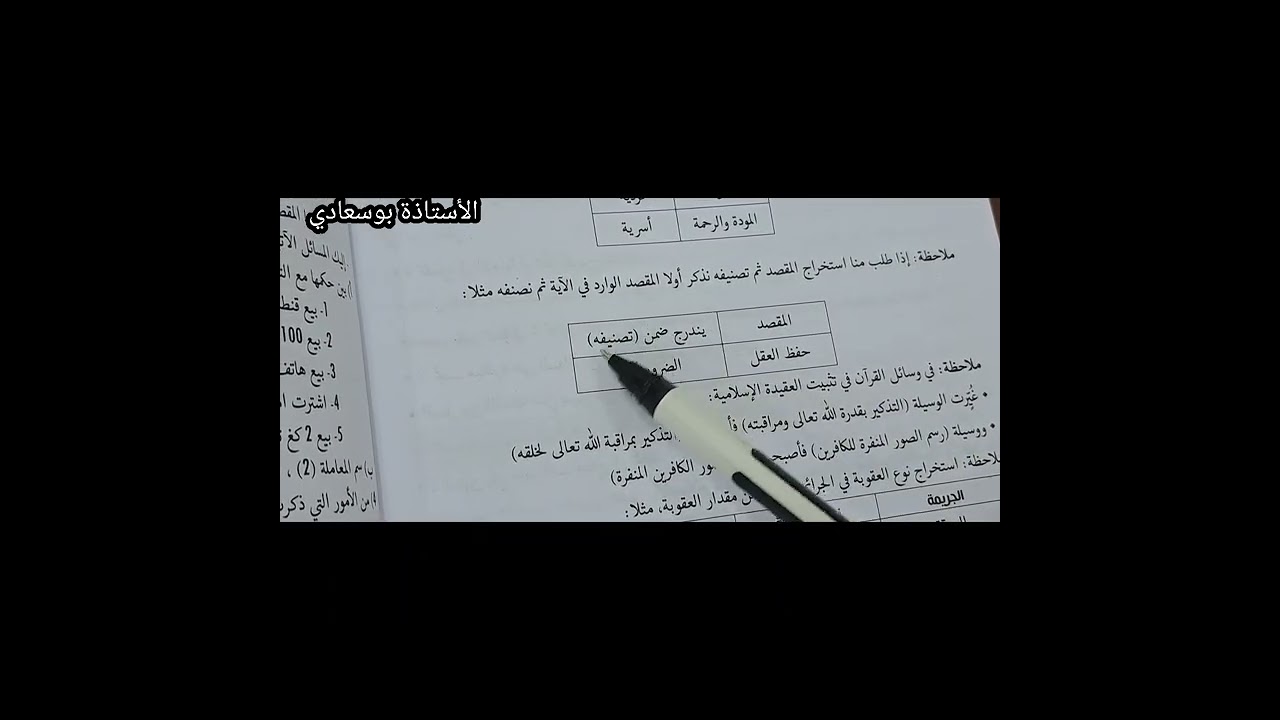 الأستاذة بوسعادي
المودة والرحمة أسرية
ملاحظة: إذا طلب منا استخراج المقصد ثم تصنيفه نذكر أولا المقصد الوارد في الآية ثم نصنفه مثلا:
المقصد يندرج ضمن (تصنيفه)
حفظ العقل
ملاحظة: في وسائل القرآن في تثبيت العقيدة الإسلامية:
• غُيِّرت الوسيلة (التذكير بقدرة الله تعالى ومراقبته) التذكير بمراقبة الله تعالى لخلقه)
• ووسيلة (رسم الصور المنفرة للكافرين) الكافرين المنفرة)
استخراج نوع العقوبة في مقدار العقوبة، مثلا:
الجريمة
إليك المسائل
بين حكمها مع
1- بيع
2- بيع 100
3- بيع هاتف
4- اشترت
5- بيع 2 كغ
سم المعاملة (2) ،
من الأمور التي